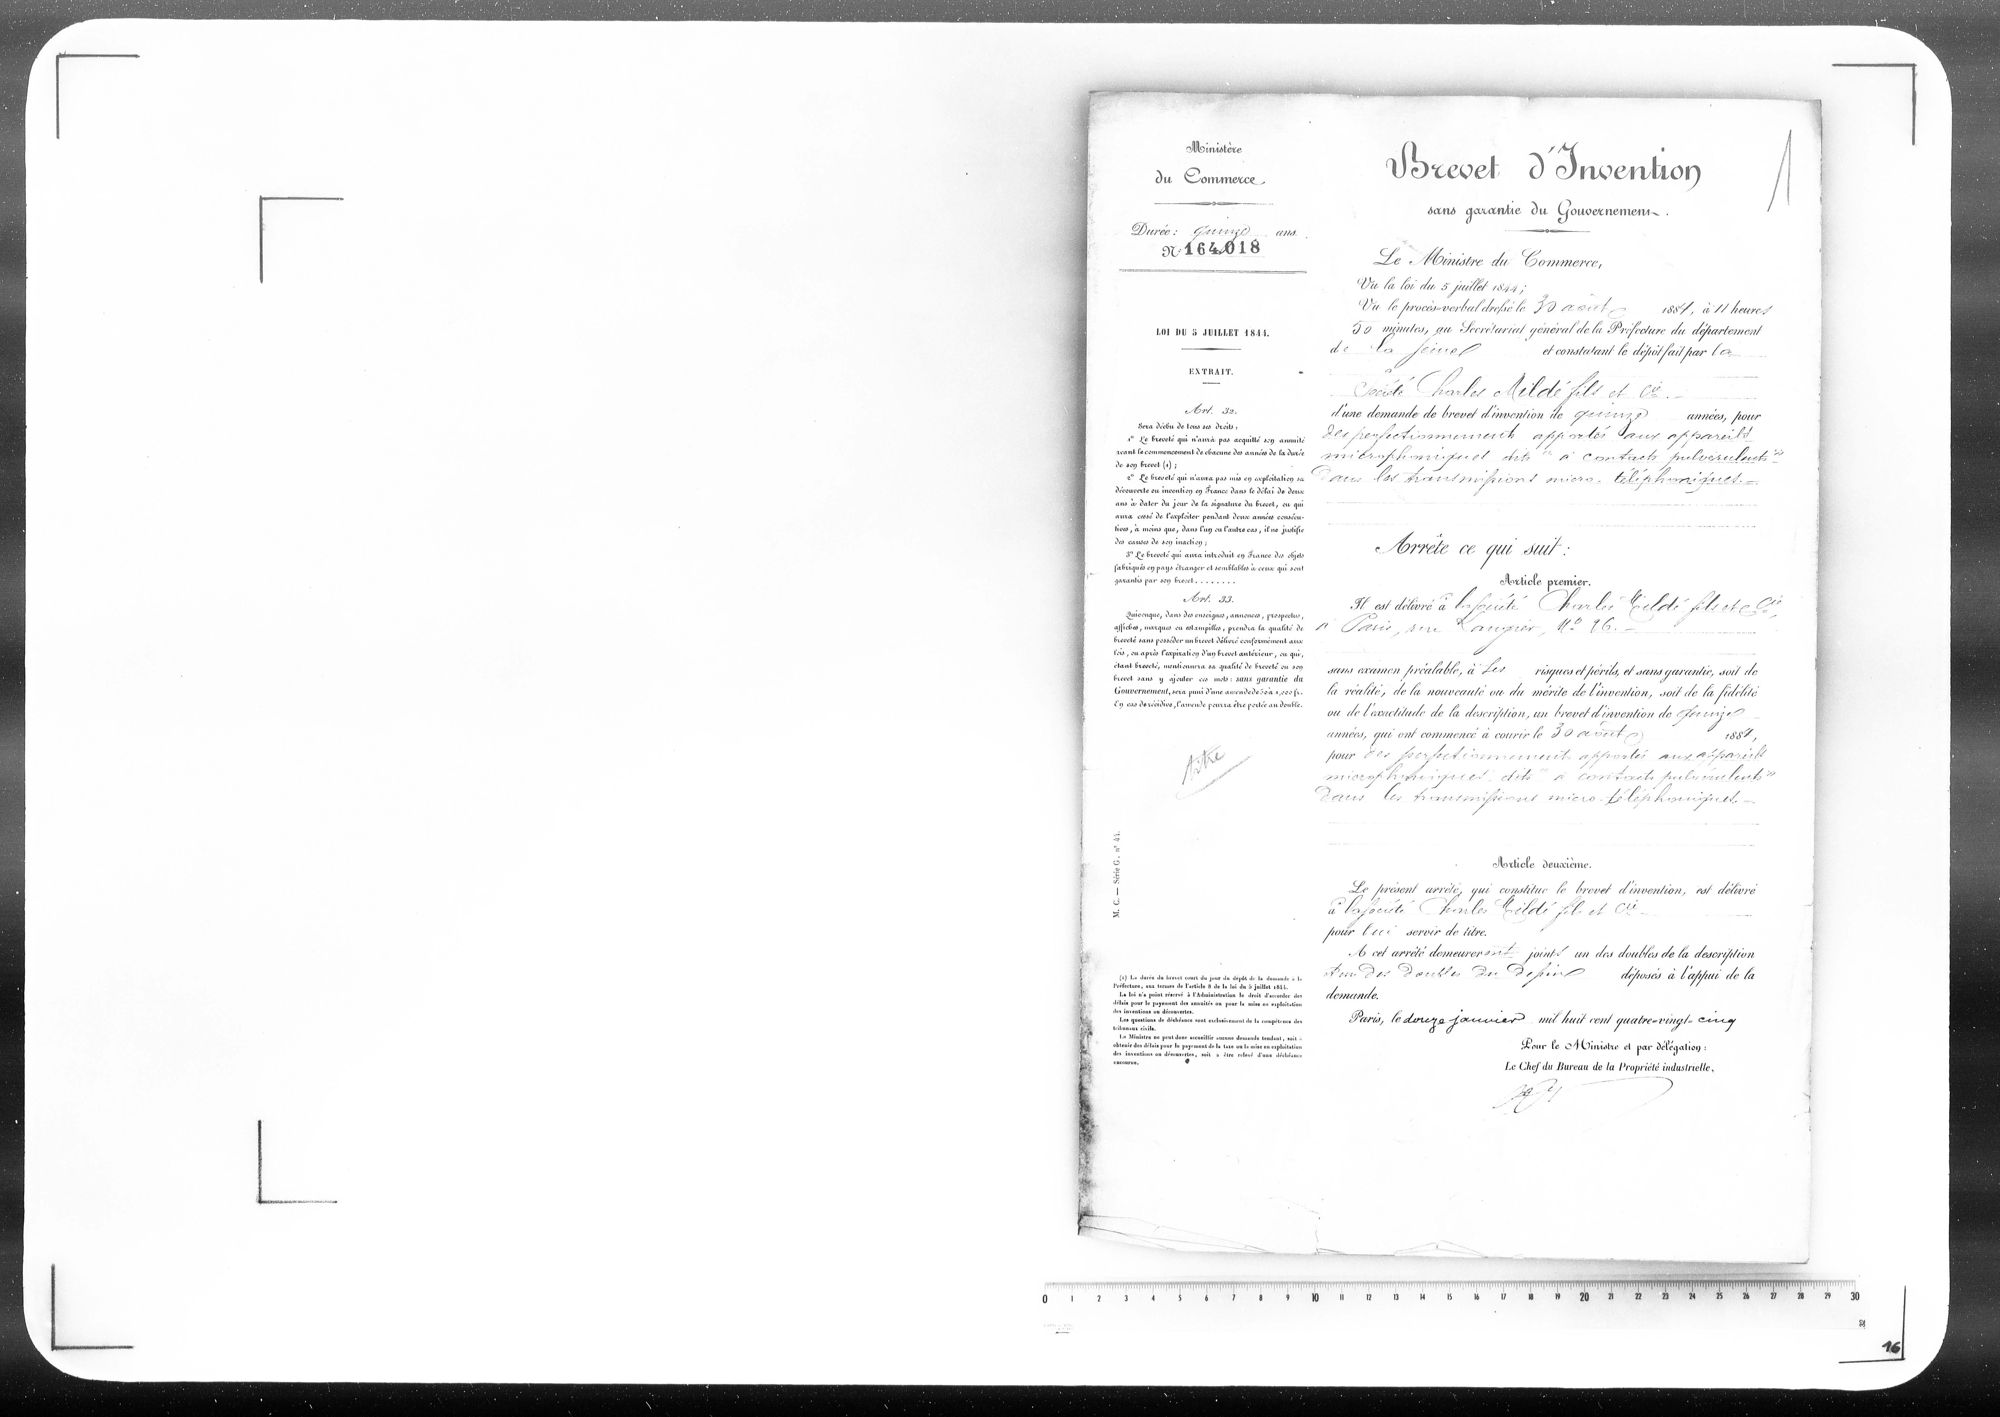 Ministère
du Commerce
Durée : quinze ans.
N° 164,018
LOI DU 5 JUILLET 1844.
EXTRAIT.
Art. 32.
Sera déchu de tous ses droits :
1° Le breveté qui n'aura pas acquitté son annuité
avant le commencement de chacune des années de la durée
de son brevet (1) ;
2° Le breveté qui n'aura pas mis en exploitation sa
découverte ou invention en France dans le délai de deux
ans à dater du jour de la signature du brevet, ou qui
aura cessé de l'exploiter pendant deux années consécu-
tives, à moins que, dans l'un ou l'autre cas, il ne justifie
des causes de son inaction ;
3° Le breveté qui aura introduit en France des objets
fabriqués en pays étranger et semblables à ceux qui sont
garantis par son brevet.......
Art. 33.
Quiconque, dans des enseignes, annonces, prospectus,
affiches, marques ou estampilles, prendra la qualité de
breveté sans posséder un brevet délivré conformément aux
lois, ou après l'expiration d'un brevet antérieur, ou qui,
étant breveté, mentionnera sa qualité de breveté ou son
brevet sans y ajouter ces mots : sans garantie du
Gouvernement, sera puni d'une amende de 50 à 1,000 fr.
En cas de récidive, l'amende pourra être portée au double.
M. C. — Série G. n° 44.
(1) La durée du brevet court du jour du dépôt de la demande à la
Préfecture, aux termes de l'article 8 de la loi du 5 juillet 1844.
La loi n'a point réservé à l'Administration le droit d'accorder des
délais pour le payement des annuités ou pour la mise en exploitation
des inventions ou découvertes.
Les questions de déchéance sont exclusivement de la compétence des
tribunaux civils.
Le Ministre ne peut donc accueillir aucune demande tendant, soit à
obtenir des délais pour le payement de la taxe ou la mise en exploitation
des inventions ou découvertes, soit à être relevé d'une déchéance
encourue.
Brevet d'Invention
1
sans garantie du Gouvernement.
Le Ministre du Commerce,
Vu la loi du 5 juillet 1844 ;
Vu le procès-verbal dressé le 30 août 1884, à 11 heures
50 minutes, au Secrétariat général de la Préfecture du département
de la Seine et constatant le dépôt fait par la
Société Charles Mildé fils et Cie
d'une demande de brevet d'invention de quinze années, pour
des perfectionnements apportés aux appareils
microphoniques dits "à contacts pulvérulents"
dans les transmissions micro-téléphoniques.
Arrête ce qui suit :
Article premier.
Il est délivré à la Société Charles Mildé fils et Cie,
à Paris, rue Laugier, No 26.
sans examen préalable, à ses risques et périls, et sans garantie, soit de
la réalité, de la nouveauté ou du mérite de l'invention, soit de la fidélité
ou de l'exactitude de la description, un brevet d'invention de quinze
années, qui ont commencé à courir le 30 août 1884,
pour des perfectionnements apportés aux appareils
microphoniques dits "à contacts pulvérulents"
dans les transmissions micro-téléphoniques.
Article deuxième.
Le présent arrêté, qui constitue le brevet d'invention, est délivré
à la Société Charles Mildé fils et Cie
pour lui servir de titre.
A cet arrêté demeureront joints un des doubles de la description
et un des doubles du dessin déposés à l'appui de la
demande.
Paris, le douze janvier mil huit cent quatre-vingt-cinq
Pour le Ministre et par délégation :
Le Chef du Bureau de la Propriété industrielle,
0 1 2 3 4 5 6 7 8 9 10 11 12 13 14 15 16 17 18 19 20 21 22 23 24 25 26 27 28 29 30
16